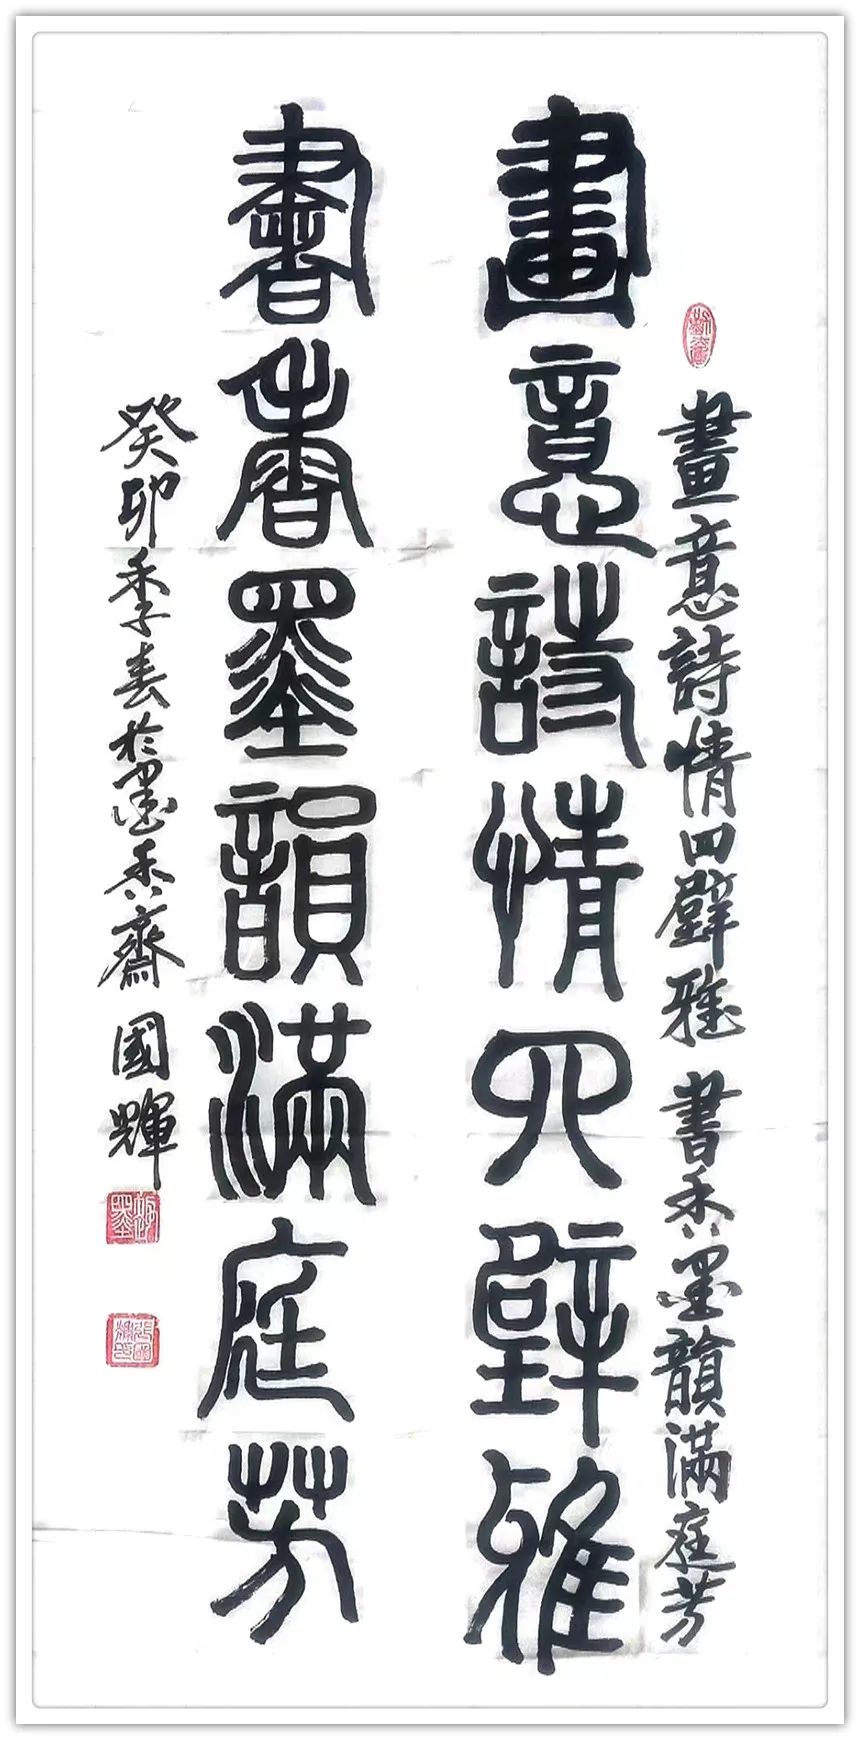 畫意詩情四壁雅 書香墨韻滿庭芳
畫意詩情四壁雅
書香墨韻滿庭芳
癸卯季春於墨香齋 國輝